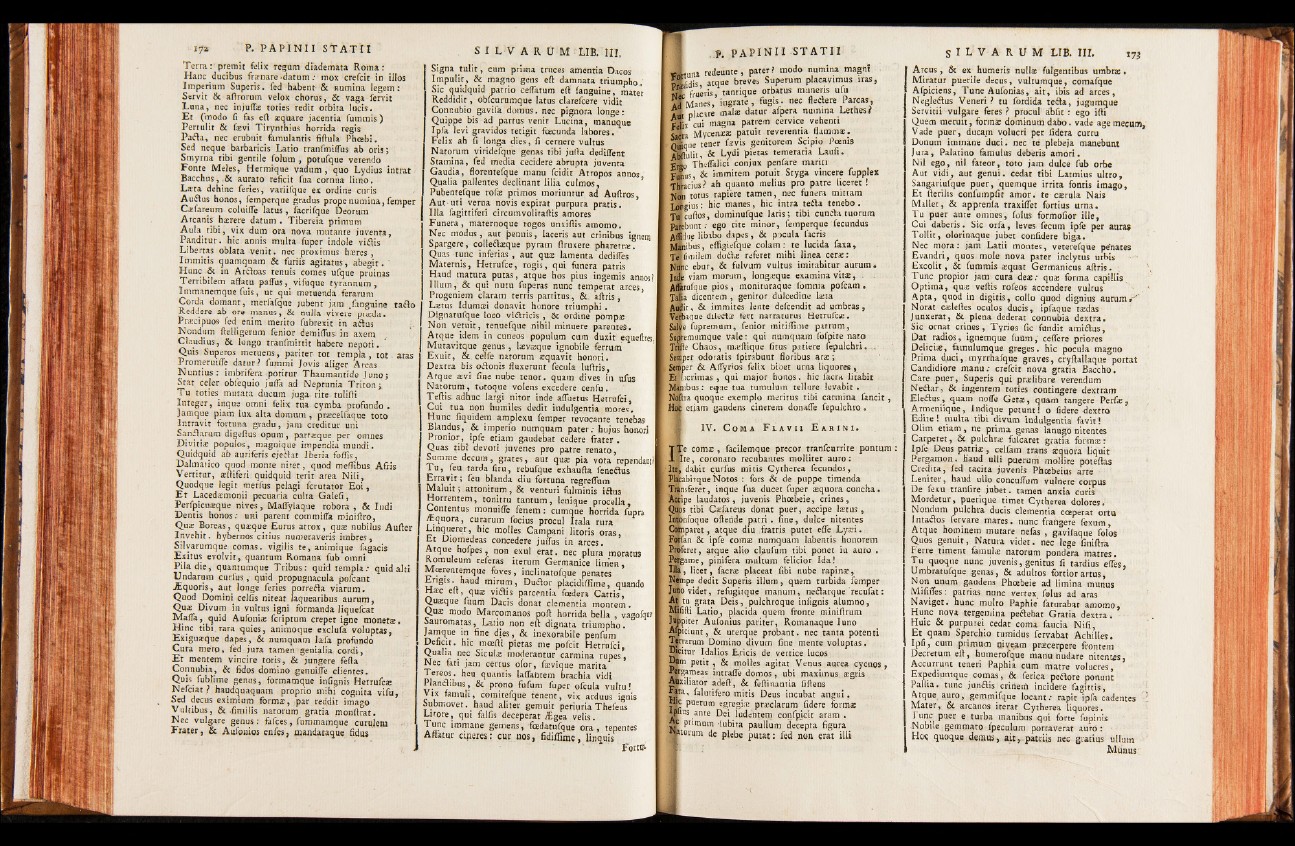 172 P. PAPINII STATII
Terra: premit felix regum diademata Roma:
Hanc ducibus frænare datum: mox crescit in illos
Imperium Superis. sed habent & numina legem:
Servit & astrorum velox chorus, & vaga servit
Luna, nec injussæ toties redit orbita lucis.
Et (modo si fas est æquare jacentia summis)
Pertulit & sævi Tirynthius horrida regis
Pacta, nec erubuit famulantis fistula Phœbi.
Sed neque barbaricis Latio transmissus ab oris;
Smyrna tibi gentile solum, potusque verendo
Fonte Meles, Hermique vadum, quo Lydius intrat
Bacchus, & aurato reficit sua cornua limo.
Læta dehinc series, variisque ex ordine curis
Auctus honos, semperque gradus prope numina, semper
Cæsareum coluisse latus, sacrisque Deorum
Arcanis hærere datum. Tibereia primum
Aula tibi, vix dum ora nova mutante juventa,
Panditur. hic annis multa super indole victis
Libertas oblata venit. nec proximus hæres,
Immitis quamquam & furiis agitatus, abegit.
Hunc & in Arctoas tenuis comes usque pruinas
Terribilem affatu passus, visuque tyrannum,
Immanemque suis, ut qui metuenda ferarum
Corda domant, mersasque jubent jam sanguine tacto
Reddere ab ore manus, & nulla vivere præda.
Præcipuos sed enim merito subrexit in actus
Nondum stelligerum senior demissus in axem
Claudius, & longo transmittit habere nepoti.
Quis Superos metuens, pariter tot templa, tot aras
Promeruisse datur? summi Jovis aliger Arcas
Nuntius: imbrifera potitur Thaumantide Juno;
Stat celer obsequio jussa ad Neptunia Triton;
Tu toties mutata ducum juga rite tulisti
Integer, inque omni felix tua cymba profundo.
Jamque piam lux alta domum, præcelsaque toto
Intravit fortuna gradu, jam creditur uni
Sanctarum digestus opum, partæque per omnes
Divitiæ populos, magnique impendia mundi.
Quidquid ab auriferis ejectat Iberia fossis,
Dalmatico quod monte nitet, quod messibus Afris
Verritur, æstiferi quidquid terit area Nili,
Quodque legit mersus pelagi scrutator Eoi,
Et Lacedæmonii pecuaria culta Galesi,
Perspicuæque nives, Massylaque robora, & Indi
Dentis honos: uni parent commissa ministro,
Quæ Boreas, quæque Eurus atrox, quæ nubilus Auster
Invehit. hybernos citius numeraveris imbres,
Silvarumque comas. vigilis te, animique sagacis
Exitus evolvit, quantum Romana sub omni
Pila die, quantumque Tribus: quid templa: quid alti
Undarum cursus, quid propugnacula poscant
Æquoris, aut longe series porrecta viarum.
Quod Domini celsis niteat laquearibus aurum,
Quæ Divum in vultus igni formanda liquescat
Massa, quid Ausoniæ scriptum crepet igne monetæ.
Hinc tibi rara quies, animoque exclusa voluptas,
Exiguæque dapes, & numquam læsa profundo
Cura mero. sed jura tamen genialia cordi,
Et mentem vincire toris, & jungere festa
Connubia, & fidos domino genuisse clientes.
Quis sublime genus, formamque insignis Hetruscæ
Nesciat? haudquaquam proprio mihi cognita visu,
Sed decus eximium formæ, par reddit imago
Vultibus, & similis natorum gratia monstrat.
Nec vulgare genus: fasces, summamque curulem
Frater, & Ausonios enses, mandataque fidus
SILVARUM LIB. III.
Signa tulit, cum prima truces amentia Dacos
Impulit, & magno gens est damnata triumpho.
Sic quidquid patrio cessatum est sanguine, mater
Reddidit, obscurumque latus clarescere vidit
Connubio gavisa domus. nec pignora longe:
Quippe bis ad partus venit Lucina, manuque
Ipsa levi gravidos tetigit fœcunda labores.
Felix ah si longa dies, si cernere vultus
Natorum viridesque genas tibi justa dedissent
Stamina, sed media cecidere abrupta juventa
Gaudia, florentesque manu scidit Atropos annos,
Qualia pallentes declinant lilia culmos,
Pubentesque rosæ primos moriuntur ad Austros,
Aut uti verna novis expirat purpura pratis.
Illa sagittiferi circumvolitastis amores
Funera, maternoque rogos unxistis amomo.
Nec modus, aut pennis, laceris aut crinibus ignem
Spargere, collectæque pyram struxere pharetræ.
Quas tunc inferias, aut quæ lamenta dedisses
Maternis, Hetrusce, rogis, qui funera patris
Haud matura putas, atque hos pius ingemis annos?
Illum, & qui nutu superas nunc temperat arces,
Progeniem claram terris partitus, & astris,
Lætus Idumæi donavit honore triumphi.
Dignatusque loco victricis, & ordine pompæ
Non vetuit, tenuesque nihil minuere parentes.
Atque idem in cuneos populum cum duxit equestres,
Mutavitque genus, lævaque ignobile ferrum
Exuit, & celso natorum æquavit honori.
Dextra bis octonis fluxerunt secula lustris,
Atque ævi sine nube tenor. quam dives in usus
Natorum, totoque volens excedere censu.
Testis adhuc largi nitor inde assuetus Hetrusci,
Cui tua non humiles dedit indulgentia mores.
Hunc siquidem amplexu semper revocante tenebas
Blandus, & imperio numquam pater: hujus honori
Pronior, ipse etiam gaudebat cedere frater.
Quas tibi devoti juvenes pro patre renato,
Summe decum, grates, aut quæ pia vota rependant?
Tu, seu tarda situ, rebusque exhausta senectus
Erravit; seu blanda diu fortuna regressum
Maluit; attonitum, & venturi fulminis ictus
Horrentem, tonitru tantum, lenique procella,
Contentus monuisse senem: cumque horrida supra
Æquora, curarum socius procul Itala rura
Linqueret, hic molles Campani litoris oras,
Et Diomedeas concedere jussus in arces.
Atque hospes, non exul erat. nec plura moratus
Romuleum reseras iterum Germanice limen,
Mœrentemque foves, inclinatosque penates
Erigis. haud mirum, Ductor placidissime, quando
Hæc est, quæ victis parcentia fœdera Cattis,
Quæque suum Dacis donat clementia montem.
Quæ modo Marcomanos post horrida bella, vagosque
Sauromatas, Latio non est dignata triumpho.
Jamque in fine dies, & inexorabile pensum
Deficit. hic mœsti pietas me poscit Hetrusci,
Qualia nec Siculæ moderantur carmina rupes,
Nec fati jam certus olor, sævique marita
Tereos. heu quantis lassantem brachia vidi
Planctibus, & prono fusum super oscula vultu!
Vix famuli, comitesque tenent, vix arduus ignis
Submovet. haud aliter gemuit periuria Theseus
Litore, qui falsis deceperat Ægea velis.
Tunc immane gemens, fœdatusque ora, tepentes
Affatur cineres: cur nos, fidissime, linquis
Fortu-
P. PAPINII STATII
Fortuna redeunte, pater? modo numina magni
Præsidis, atque breves Superum placavimus iras,
Nec frueris, tantique orbatus muneris usu
Ad Manes, ingrate, fugis. nec flectere Parcas,
Aut placare malæ datur aspera numina Lethes?
Felix cui magna patrem cervice vehenti
Sacra Mycenææ patuit reverentia flammæ.
Quique tener sævis genitorem Scipio Pœnis
Abstulit, & Lydi pietas temeraria Lausi.
Ergo Thessalici conjux pensare mariti
Funus, & immitem potuit Styga vincere supplex
Thracius? ah quanto melius pro patre liceret!
Non totus rapiere tamen, nec funera mittam
Longius: hic manes, hic intra tecta tenebo.
Tu custos, dominusque laris; tibi cuncta tuorum
Parebunt: ego rite minor, semperque secundus
Assidue libabo dapes, & pocula sacris
Manibus, effigiesque colam: te lucida saxa,
Te similem doctæ referet mihi linea ceræ:
Nunc ebur, & fulvum vultus imitabitur aurum.
Inde viam morum, longæque examina vitæ,
Affatusque pios, monituraque somnia poscam.
Talia dicentem, genitor dulcedine læta
Audit, & immites lente descendit ad umbras,
Verbaque dilectæ fert narraturus Hetruscæ.
Salve supremum, senior mitissime patrum,
Supremumque vale: qui numquam sospite nato
Triste Chaos, mæstique situs patiere sepulchri.
Semper odoratis spirabunt floribus aræ;
Semper & Assyrios felix bibet urna liquores,
Et lacrimas, qui major honos. hic sacra litabit
Manibus: eque tua tumulum tellure levabit.
Nostra quoque exemplo meritus tibi carmina sancit,
Hoc etiam gaudens cinerem donasse sepulchro.
IV. COMA FLAVII EARINI.
ITe comæ, facilemque precor transcurrite pontum:
Ite, coronato recubantes molliter auro:
Ite, dabit cursus mitis Cytherea secundos,
Placabitque Notos: fors & de puppe timenda
Transferet, inque sua ducet super æquora concha.
Accipe laudatos, juvenis Phœbeie, crines,
Quos tibi Cæsareus donat puer, accipe lætus,
Intonsoque ostende patri. sine, dulce nitentes
Comparet, atque diu fratris putet esse Lyæi.
Forsan & ipse comæ numquam labentis honorem
Proferet, atque alio clausum tibi ponet in auro.
Pergame, pinifera multum felicior Ida!
Illa, licet, sacræ placeat sibi nube rapinæ,
Nempe dedit Superis illum, quem turbida semper
Juno videt, refugitque manum, nectarque recusat:
At tu grata Deis, pulchroque insignis alumno,
Misisti Latio, placida quem fronte ministrum
Juppiter Ausonius pariter, Romanaque Juno
Aspiciunt, & uterque probant. nec tanta potenti
Terrarum Domino divum sine mente voluptas.
Dicitur Idalios Ericis de vertice lucos
Dum petit, & molles agitat Venus aurea cycnos,
Pergameas intrasse domos, ubi maximus ægris
Auxiliator adest, & festinantia sistens
Fata, salutifero mitis Deus incubat angui.
Hic puerum egregiæ præclarum sidere formæ
Ipsius ante Dei ludentem conspicit aram.
Ac primum subita paullum decepta figura
Natorum de plebe putat: sed non erat illi
SILVARUM LIB. III. 173
Arcus, & ex humeris nullæ fulgentibus umbræ.
Miratur puerile decus, vultumque, comasque
Aspiciens, Tune Ausonias, ait, ibis ad arces,
Neglectus Veneri? tu sordida tecta, jugumque
Servitii vulgare feres? procul absit: ego isti
Quem meruit, formæ dominum dabo. vade age mecum,
Vade puer, ducam volucri per sidera curru
Donum immane duci. nec te plebeja manebunt
Jura, Palatino famulus deberis amori.
Nil ego, nil fateor, toto jam dulce sub orbe
Aut vidi, aut genui. cedat tibi Larmius ultro,
Sangariusque puer, quemque irrita fontis imago,
Et sterilis consumpsit amor. te cærula Nais
Mallet, & apprensa traxisset fortius urna.
Tu puer ante omnes, solus formosior ille,
Cui daberis. Sic orsa, leves secum ipse per auras
Tollit, olorinaque jubet considere biga.
Nec mora: jam Latii montes, veteresque penates
Evandri, quos mole nova pater inclytus urbis
Excolit, & summis æquat Germanicus astris.
Tunc propior jam cura deæ: quæ forma capillis
Optima, quæ vestis roseos accendere vultus
Apta, quod in digitis, collo quod dignius aurum.
Norat cælestes oculos ducis, ipsaque tædas
Junxerat, & plena dederat connubia dextra.
Sic ornat crines, Tyrios sic fundit amictus,
Dat radios, ignemque suum, cessere priores
Deliciæ, famulumque greges. hic pocula magno
Prima duci, myrrhasque graves, crystallaque portat
Candidiore manu: crescit nova gratia Baccho.
Care puer, Superis qui prælibare verendum
Nectar, & ingentem toties contingere dextram
Electus, quam nosse Getæ, quam tangere Persæ,
Armeniique, Indique petunt! o sidere dextro
Edite! multa tibi divum indulgentia favit!
Olim etiam, ne prima genas lanugo nitentes
Carperet, & pulchræ fuscaret gratia formæ:
Ipse Deus patriæ, celsam trans æquora liquit
Pergamon. haud ulli puerum mollire potestas
Credita, sed tacita juvenis Phœbeius arte
Leniter, haud ullo concussum vulnere corpus
De sexu transire jubet. tamen anxia curis
Mordetur, puerique timet Cytherea dolores.
Nondum pulchra ducis clementia cœperat ortu
Intactos servare mares. nunc frangere sexum,
Atque hominem mutare nefas, gavisaque solos
Quos genuit, Natura videt. nec lege sinistra
Ferre timent famulæ natorum pondera matres.
Tu quoque nunc juvenis, genitus si tardius esses,
Umbratusque genas, & adultos fortior artus,
Non unum gaudens Phœbeie ad limina munus
Misisses: patrias nunc vertex solus ad aras
Naviget. hunc multo Paphie saturabat amomo,
Hunc nova tergemina pectebat Gratia dextra.
Huic & purpurei cedat coma saucia Nisi,
Et quam Sperchio tumidus servabat Achilles.
Ipsi, cum primum niveam præcerpere frontem
Decretum est, humerosque manu nudare nitentes,
Accurrunt teneri Paphia cum matre volucres,
Expediuntque comas, & serica pectore ponunt
Pallia. tunc junctis crinem incidere sagittis,
Atque auro, gemmisque locant: rapit ipsa cadentes
Mater, & arcanos iterat Cytherea liquores.
Tunc puer e turba manibus qui forte supinis
Nobile gemmato speculum portaverat auro:
Hoc quoque demus, ait, patriis nec gratius ullum
Munus